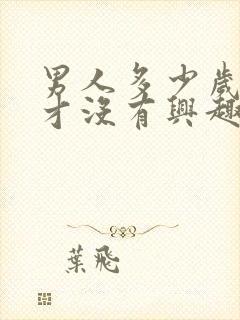 男人多少歲
才沒有興趣
葉飛